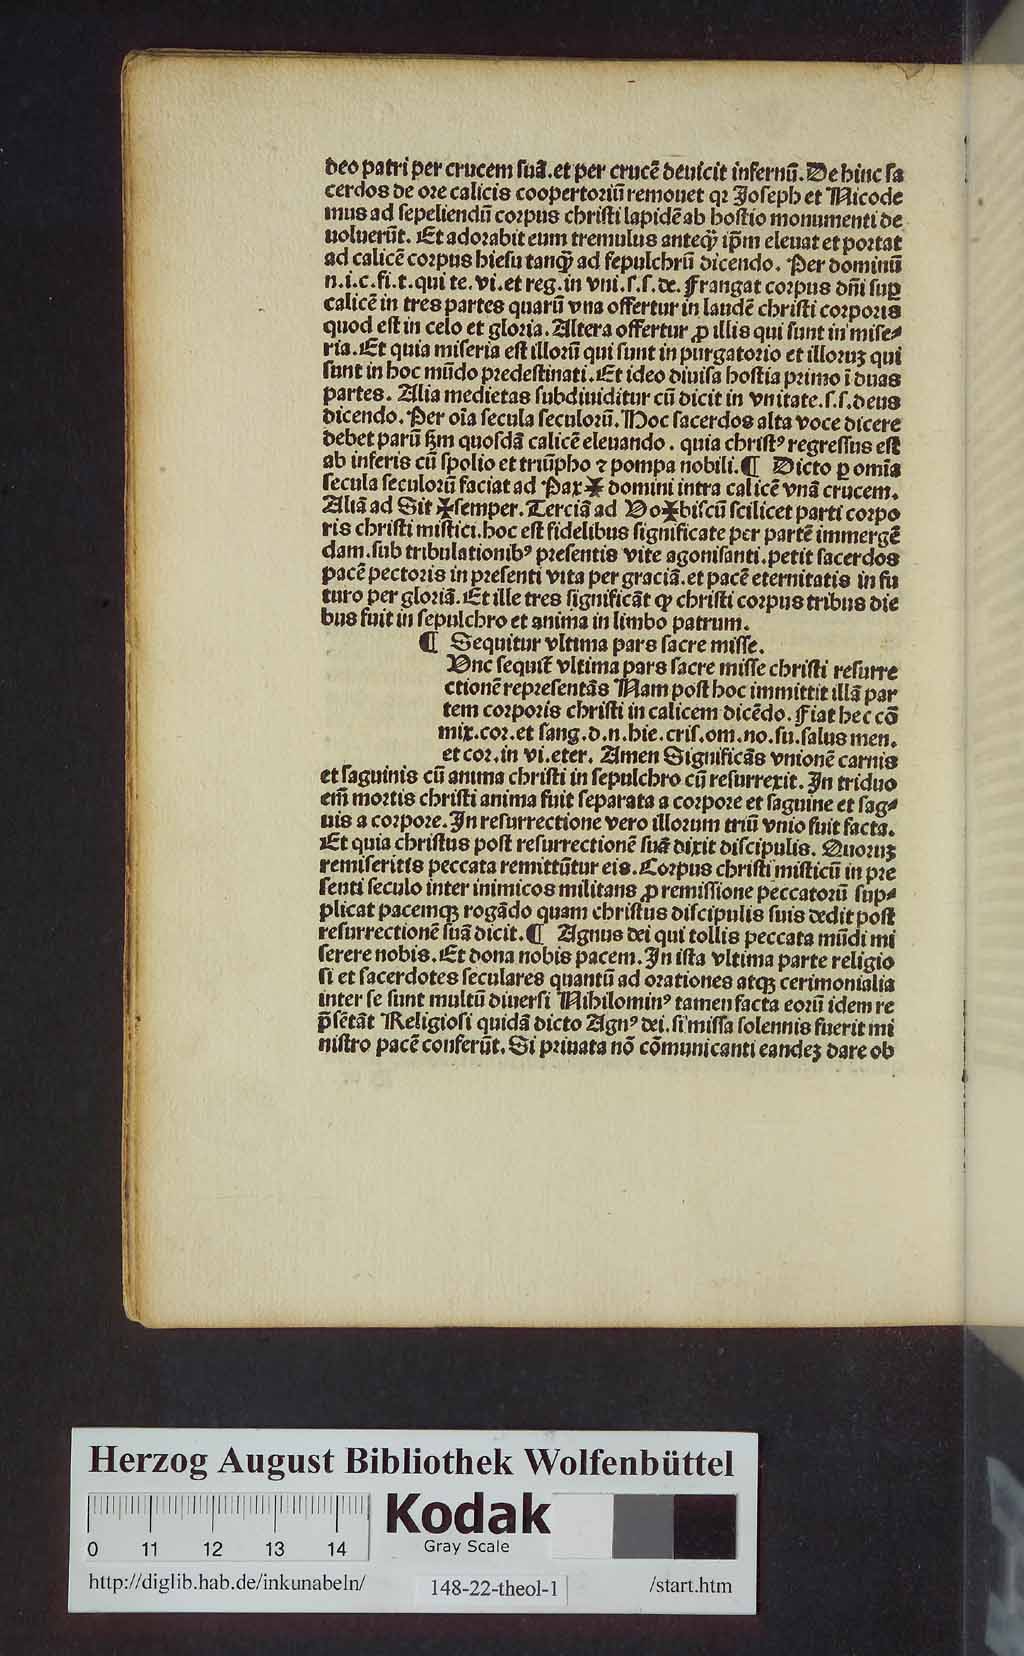 deo patri per crucem suā.et per crucē deuicit infernū.De hinc sa
cerdos de ore calicis coopertoriū remouet qꝛ Joseph et Nicode
mus ad sepeliendū corpus christi lapidē ab hostio monumenti de
uoluerūt. Et adorabit eum tremulus anteq̄ȝ ip̄m eleuat et portat
ad calicē corpus hiesu tanq̄ȝ ad sepulchrū dicendo. Per dominū
n.i.c.fi.t.qui te.vi.et reg.in vni.s.s.de. Frangat corpus dn̄i suꝑ
calicē in tres partes quarū vna offertur in laudē christi corporis
quod est in celo et gloria. Altera offertur ꝓ illis qui sunt in mise⸗
ria.Et quia miseria est illorū qui sunt in purgatorio et illoruȝ qui
sunt in hoc mūdo predestinati. Et ideo diuisa hostia primo ī duas
partes. Alia medietas subdiuiditur cū dicit in vnitate.s.s.deus
dicendo. Per oīa secula seculorū. Hoc sacerdos alta voce dicere
debet parū ẜm quosdā calicē eleuando. quia christꝰ regressus est
ab inferis cū spolio et triūpho ⁊ pompa nobili.¶ Dicto ꝑ omīa
secula seculorū faciat ad Pax✠ domini intra calicē vnā crucem.
Aliā ad Sit ✠semper. Terciā ad Vo✠biscū scilicet parti corpo
ris christi mistici.hoc est fidelibus significate per partē immergē
dam.sub tribulationibꝰ presentis vite agonisanti.petit sacerdos
pacē pectoris in presenti vita per graciā.et pacē eternitatis in fu
turo per gloriā. Et ille tres significāt ꝙ christi corpus tribus die
bus fuit in sepulchro et anima in limbo patrum.
¶ Sequitur vltima pars sacre misse.
Vnc sequiť vltima pars sacre misse christi resurre
ctionē represetās Nam post hoc immittit illā par
tem corporis christi in calicem dicēdo. Fiat hec cō
mix.cor.et sang.d.n.hie.cris.om.no.su.salus men.
et cor.in vi.eter. Amen Significās vnionē carnis
et saguinis cū anima christi in sepulchro cū resurrexit. In triduo
em̄ mortis christi anima fuit separata a corpore et saguine et sag⸗
uis a corpore. In resurrectione vero illorum triū vnio fuit facta.
Et quia christus post resurrectionē suā dixit discipulis. Quoruȝ
remiseritis peccata remittūtur eis. Corpus christi misticū in pre
senti seculo inter inimicos militans ꝓ remissione peccatorū sup⸗
plicat pacemqȝ rogādo quam christus discipulis suis dedit post
resurrectionē suā dicit.¶ Agnus dei qui tollis peccata mūdi mi
serere nobis. Et dona nobis pacem. In ista vltima parte religio
si et sacerdotes seculares quantū ad orationes atqȝ cerimonialia
inter se sunt multū diuersi Nihilominꝰ tamen facta eorū idem re
p̄sētāt Religiosi quidā dicto Agnꝰ dei.si missa solennis fuerit mi
nistro pacē conferūt. Si priuata nō cōmunicanti eandeȝ dare ob
Herzog August Bibliothek Wolfenbüttel
Kodak
Gray Scale
0 11 12 13 14
http://diglib.hab.de/inkunabeln/ 148-22-theol-1 /start.htm